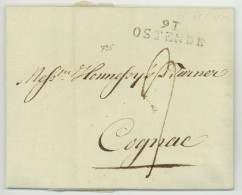 91
OSTENDE
Mess.rs Hennessy & Turner
Cognac